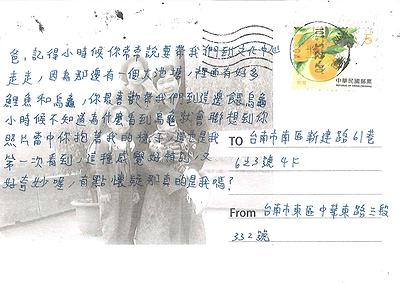 爸,記得小時候你常常說要帶我們到文化中心
走走,因為那邊有一個大池塘,裡面有好多
鯉魚和烏龜,你最喜歡帶我們到這邊餵烏龜
小時候不知道為什麼看到烏龜就會聯想到你
照片當中你抱著我的樣子,這也是我
第一次看到,這種感覺好特別,又
好奇妙喔,有點懷疑那真的是我嗎?
中華民國郵票
REPUBLIC OF CHINA (TAIWAN)
5
TO 台南市南區新建路61巷
623號4F
From 台南市東區中華東路三段
332號